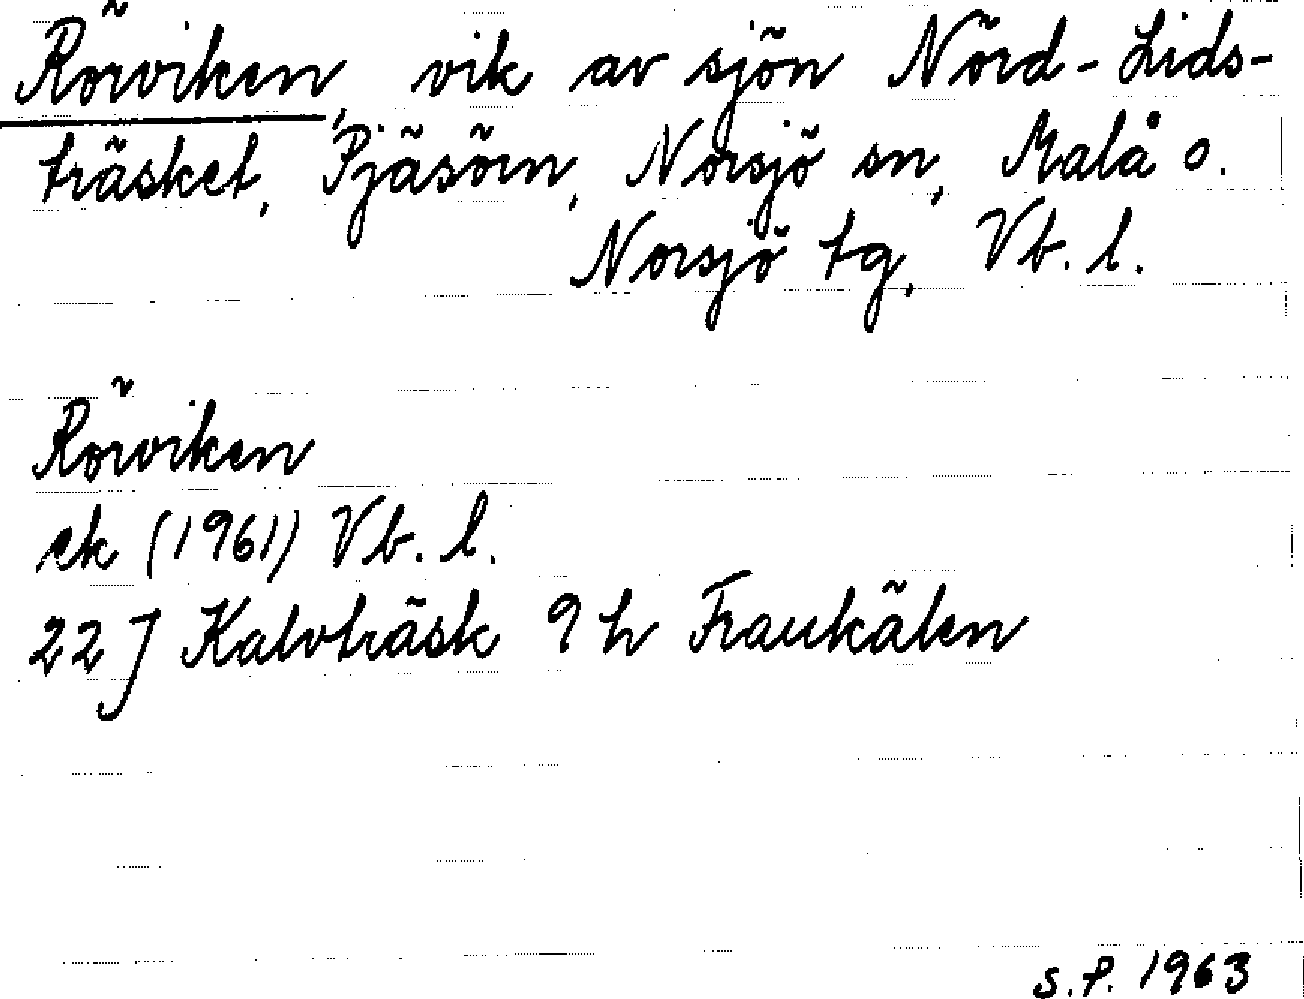 Rörviken, vik av sjön Nörd-Lids-
träsket, Pjäsörn, Norsjö sn, Malå o.
Norsjö tg, Vb. l.
Rörviken
ek (1961) Vb. l.
22 J Kalvträsk 9 h Fraukälen
S.P. 1963